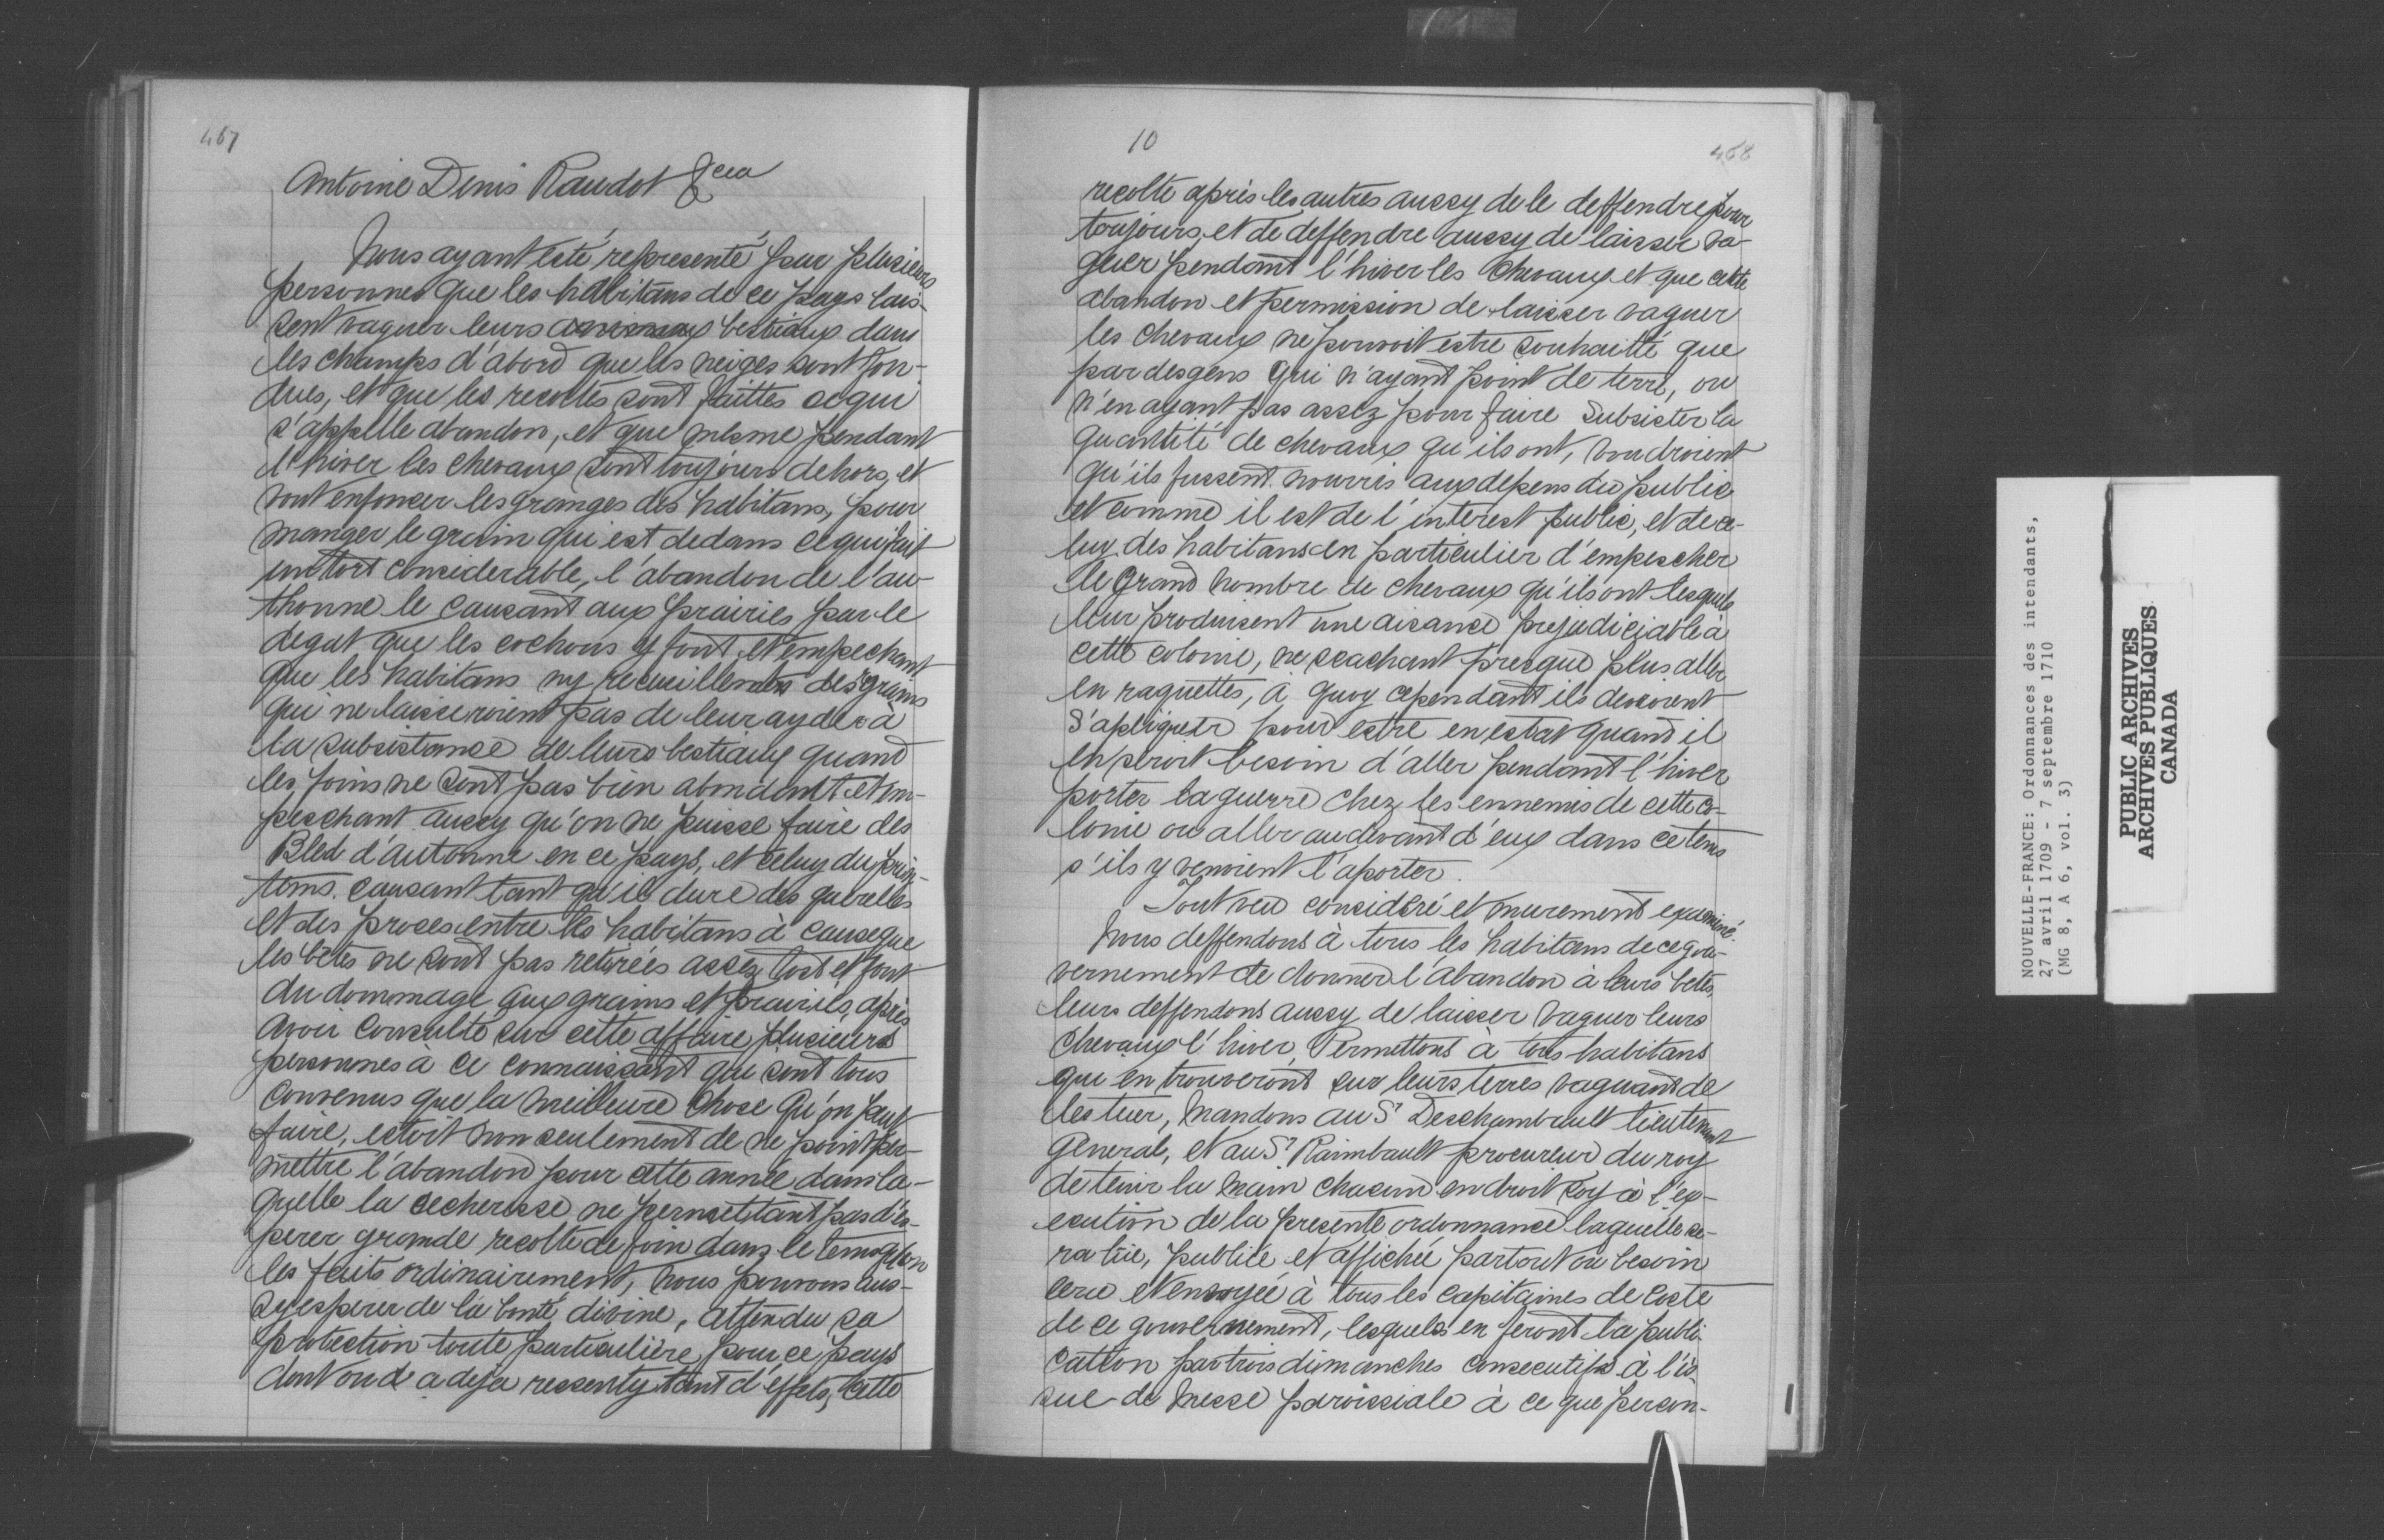 467
Antoine Denis Raudot &cea
Nous ayant esté representé par plusieurs
personnes que les habitans de ce pays lais-
sent vaguer leurs animaux bestiaux dans
les champs d'abord que les neiges sont fon-
dues, et que les recoltes sont faittes ce qui
s'appelle abandon, et que mesme pendant
l'hiver les chevaux sont toujours dehors, et
vont enfoncer les granges des habitans, pour
manger le grain qui est dedans ce qui fait
un tort considerable, l'abandon de l'au-
thonne le causant aux prairies par le
degat que les cochons y font et empechant
que les habitans ny recueillent des grains
qui ne laisseroient pas de leur ayder à
la subsistance de leurs bestiaux quand
les foins ne sont pas bien abondant et em-
peschant aussy qu'on ne puisse faire des
Bled d'autonne en ce pays, et celuy du prin-
tems causant tant qu'il dure des querelles
et des proces entre les habitans à cause que
les bêtes ne sont pas retirées assez tost et font
du dommage aux grains et prairies, après
avoir consulté sur cette affaire plusieurs
personnes à ce connaissant qui sont tous
convenus que la meilleure chose qu'on peut
faire, estoit non seulement de ne point per-
mettre l'abandon pour cette année dans la-
quelle la secheresse ne permettant pas d'es-
perer grande recolte de foin dans le tems qu'on
les faits ordinairement, nous pouvons aus-
sy esperer de la bonté divine, attendu sa
protection toute particulière pour ce pays
dont on a deja ressenty tant d'effets, cette
10
468
recolte après les autres aussy de le deffendre pour
toujours, et de deffendre aussy de laisser va-
guer pendant l'hiver les chevaux et que cette
abandon et permission de laisser vaguer
les chevaux ne pouvoit estre souhaitté que
par des gens qui n'ayant point de terre, ou
n'en ayant pas assez pour faire subsister la
quantité de chevaux qu'ils ont, voudroient
qu'ils fussent nourris aux depens du public
et comme il est de l'interest public, et de ce-
luy des habitans en particulier d'empescher
le grand nombre de chevaux qu'ils ont lesquels
leur produisent une aisance prejudiciable à
cette colonie, ne scachant presque plus aller
en raquettes, à quoy cependant ils devroient
s'apliquer pour estre en estat quand il
en seroit besoin d'aller pendant l'hiver
porter la guerre chez les ennemis de cette co-
lonie ou aller au devant d'eux dans ce tems
s'ils y venoient l'aporter.
Tout veu consideré et murement examiné.
Nous deffendons à tous les habitans de ce gou-
vernement de donner l'abandon à leurs betes,
leurs deffendons aussy de laisser vaguer leurs
chevaux l'hiver, Permettons à tous habitans
qui en trouveront sur leurs terres vaguant de
les tuer, Mandons au Sr Deschambault lieutenant
general, et au Sr Raimbault procureur du roy
de tenir la main chacun en droit soy à l'ex-
ecution de la presente ordonnance laquelle se-
ra lüe, publiée et affichée partout ou besoin
sera et envoyée à tous les capitaines de coste
de ce gouvernement, lesquels en feront la publi-
cation par trois dimanches consecutifs à l'is-
sue de messe paroissiale à ce que person-
NOUVELLE-FRANCE: Ordonnances des intendants,
27 avril 1709 - 7 septembre 1710
(MG 8, A 6, vol. 3)
PUBLIC ARCHIVES
ARCHIVES PUBLIQUES
CANADA